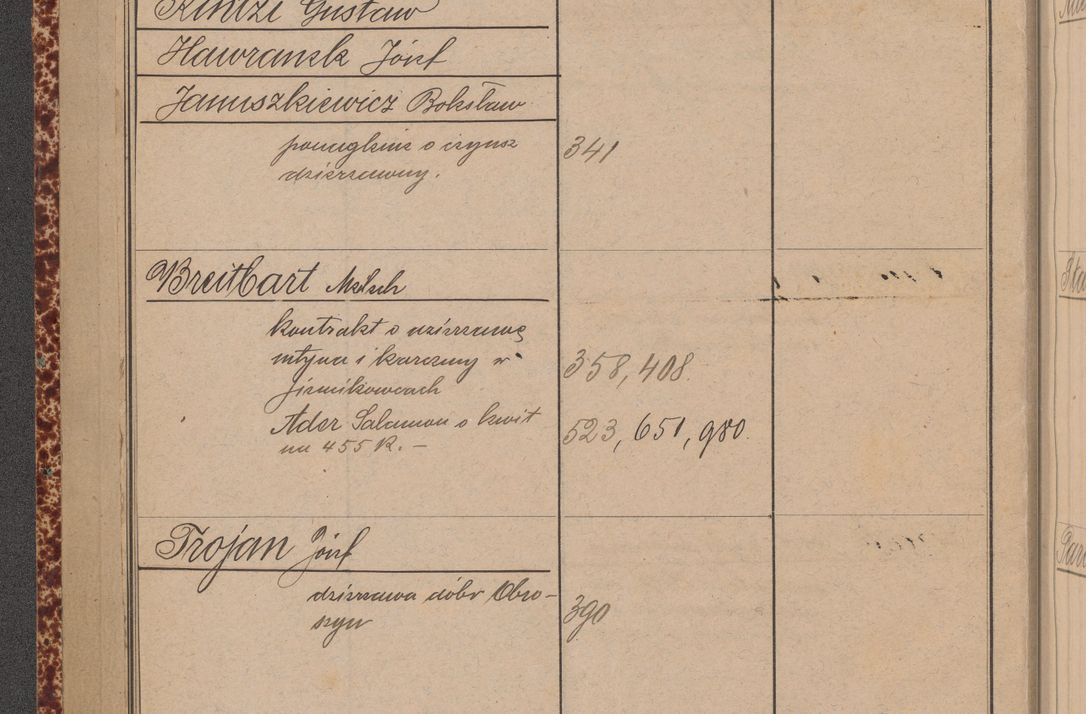 Gustaw
Hawranek Józef
Januszkiewicz Bolesław
o czynsz 341
dzierżawny.
Breitbart Melech
kontrakt o dzierżawę
młyna i karczmy w 358, 408.
Jśnikowcach
Ader Salamon o kwit 523, 651, 980.
na 455 K. —
Trojan Józef
dzierżawa dóbr Obro-
szyn 390